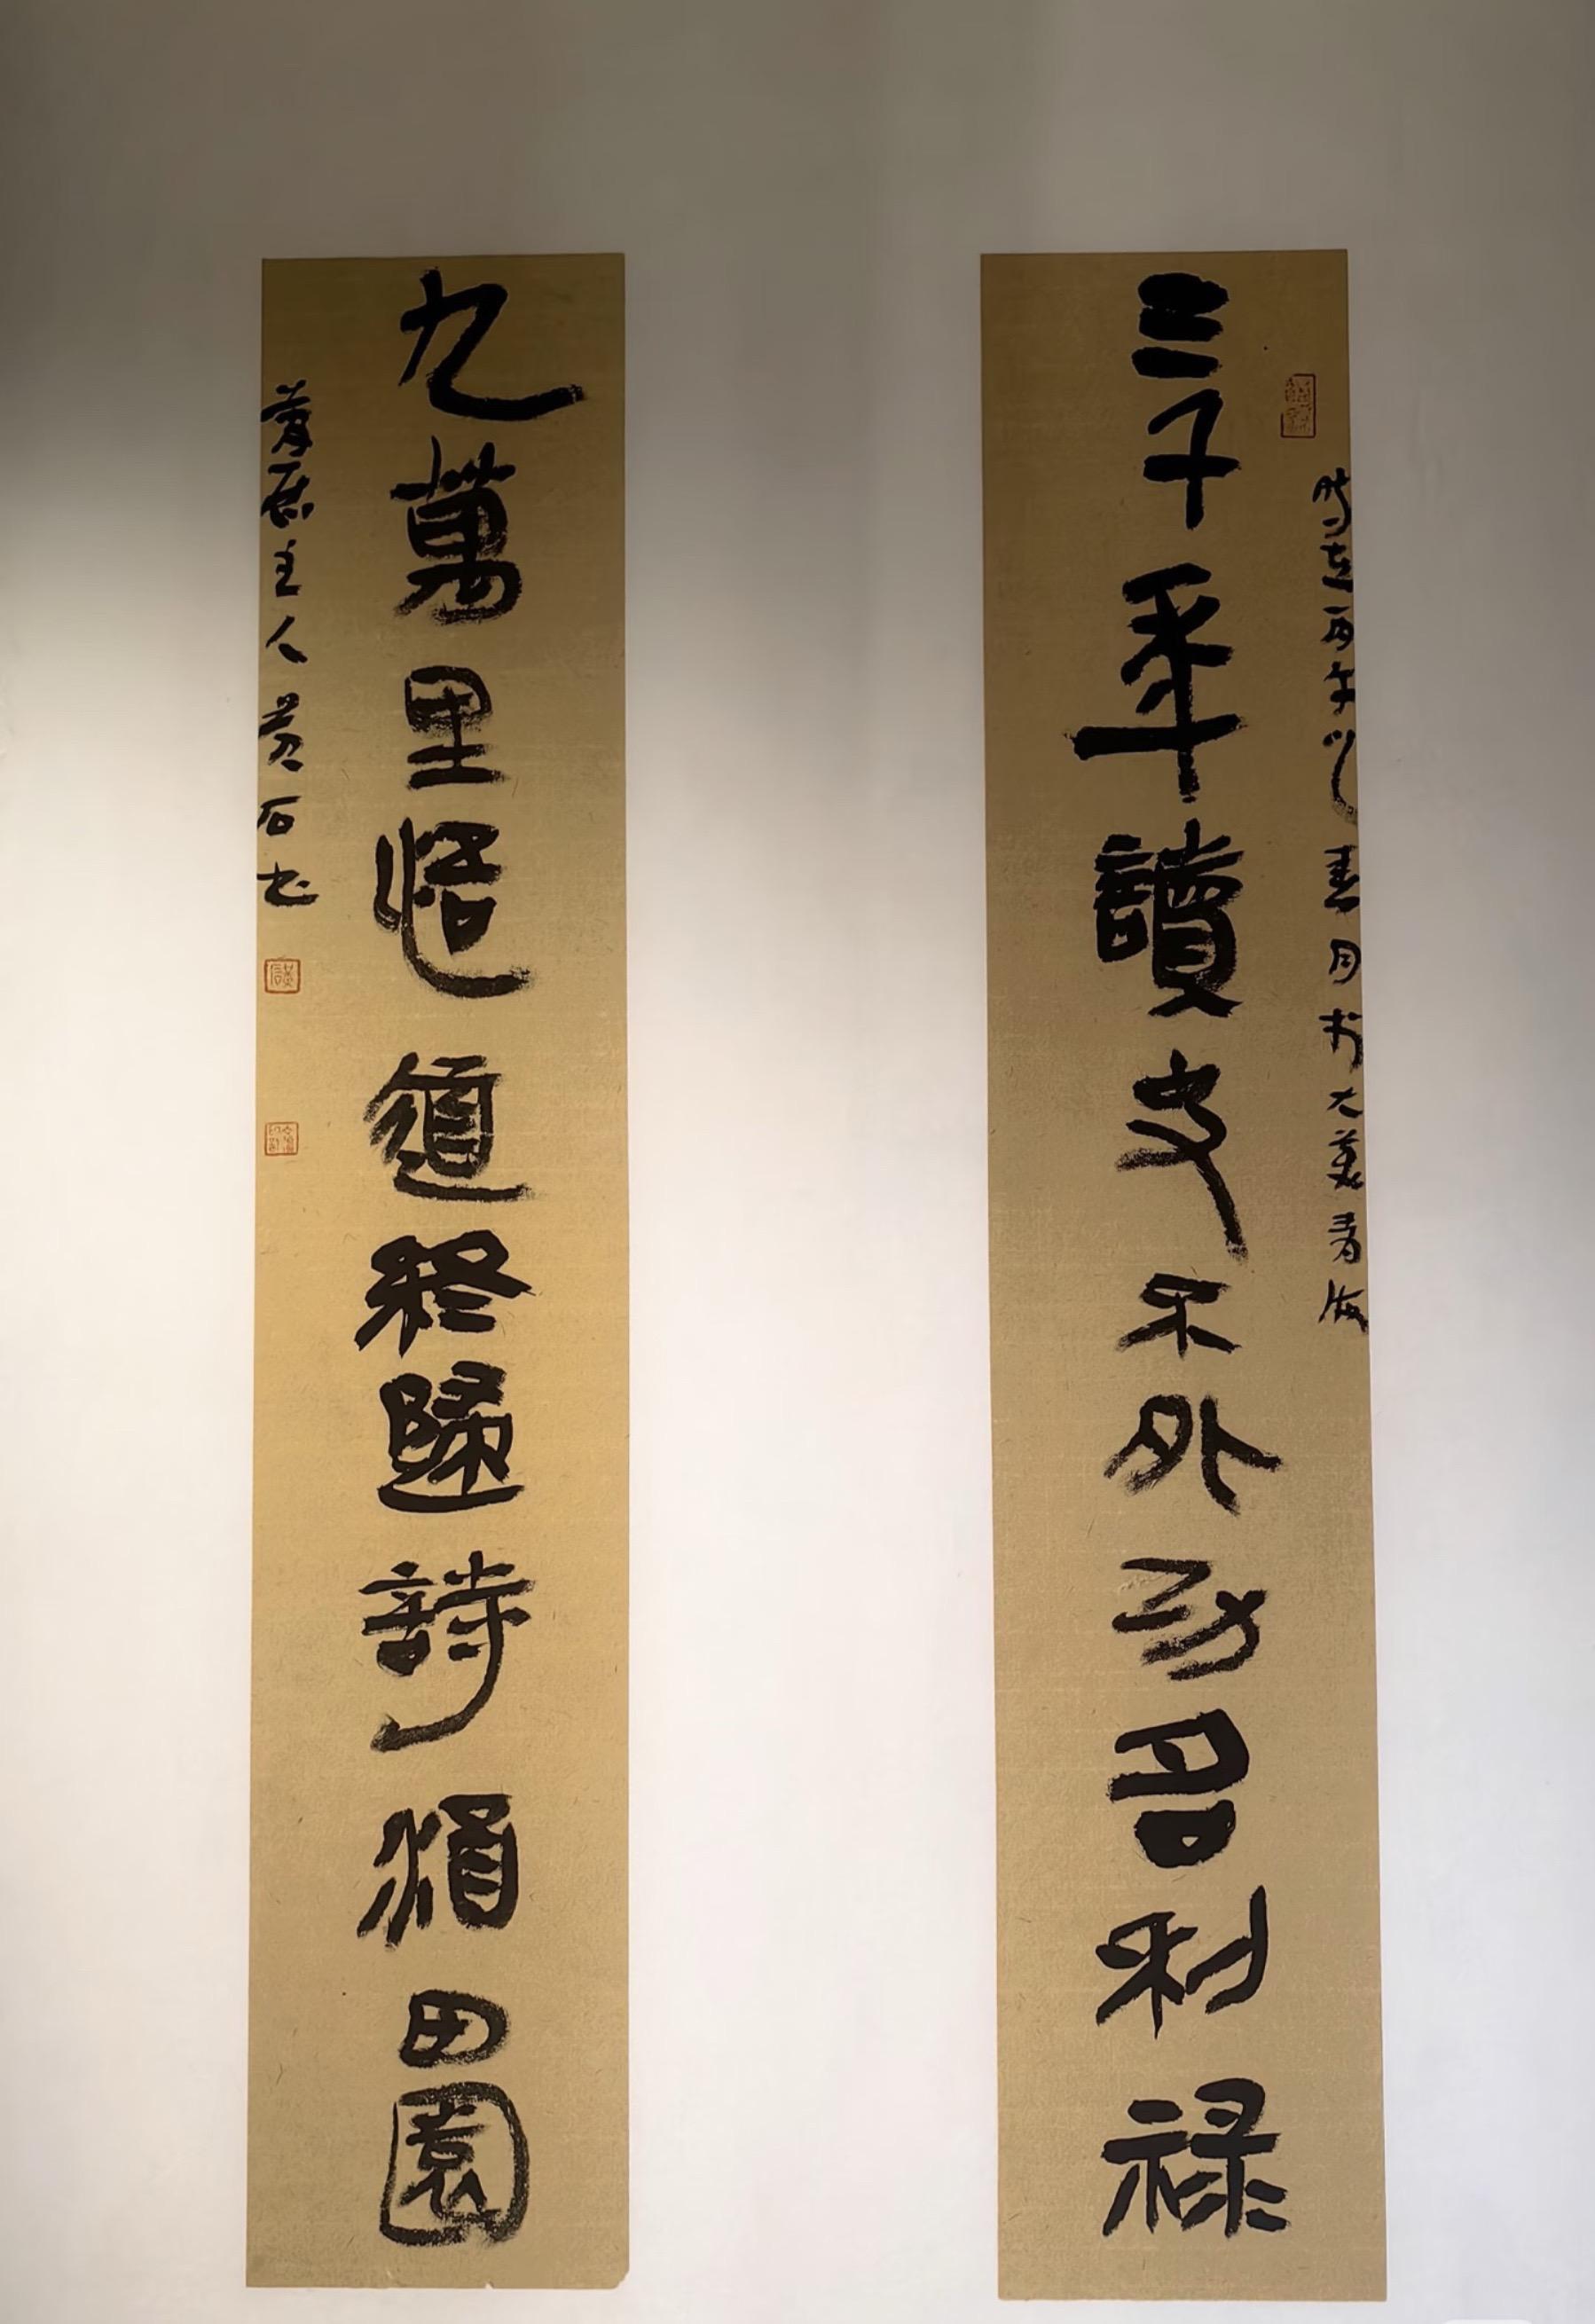 三千年讀史不外功名利祿
時在丙午春月於大美青海
九萬里悟道終歸詩酒田園
主人黄石书